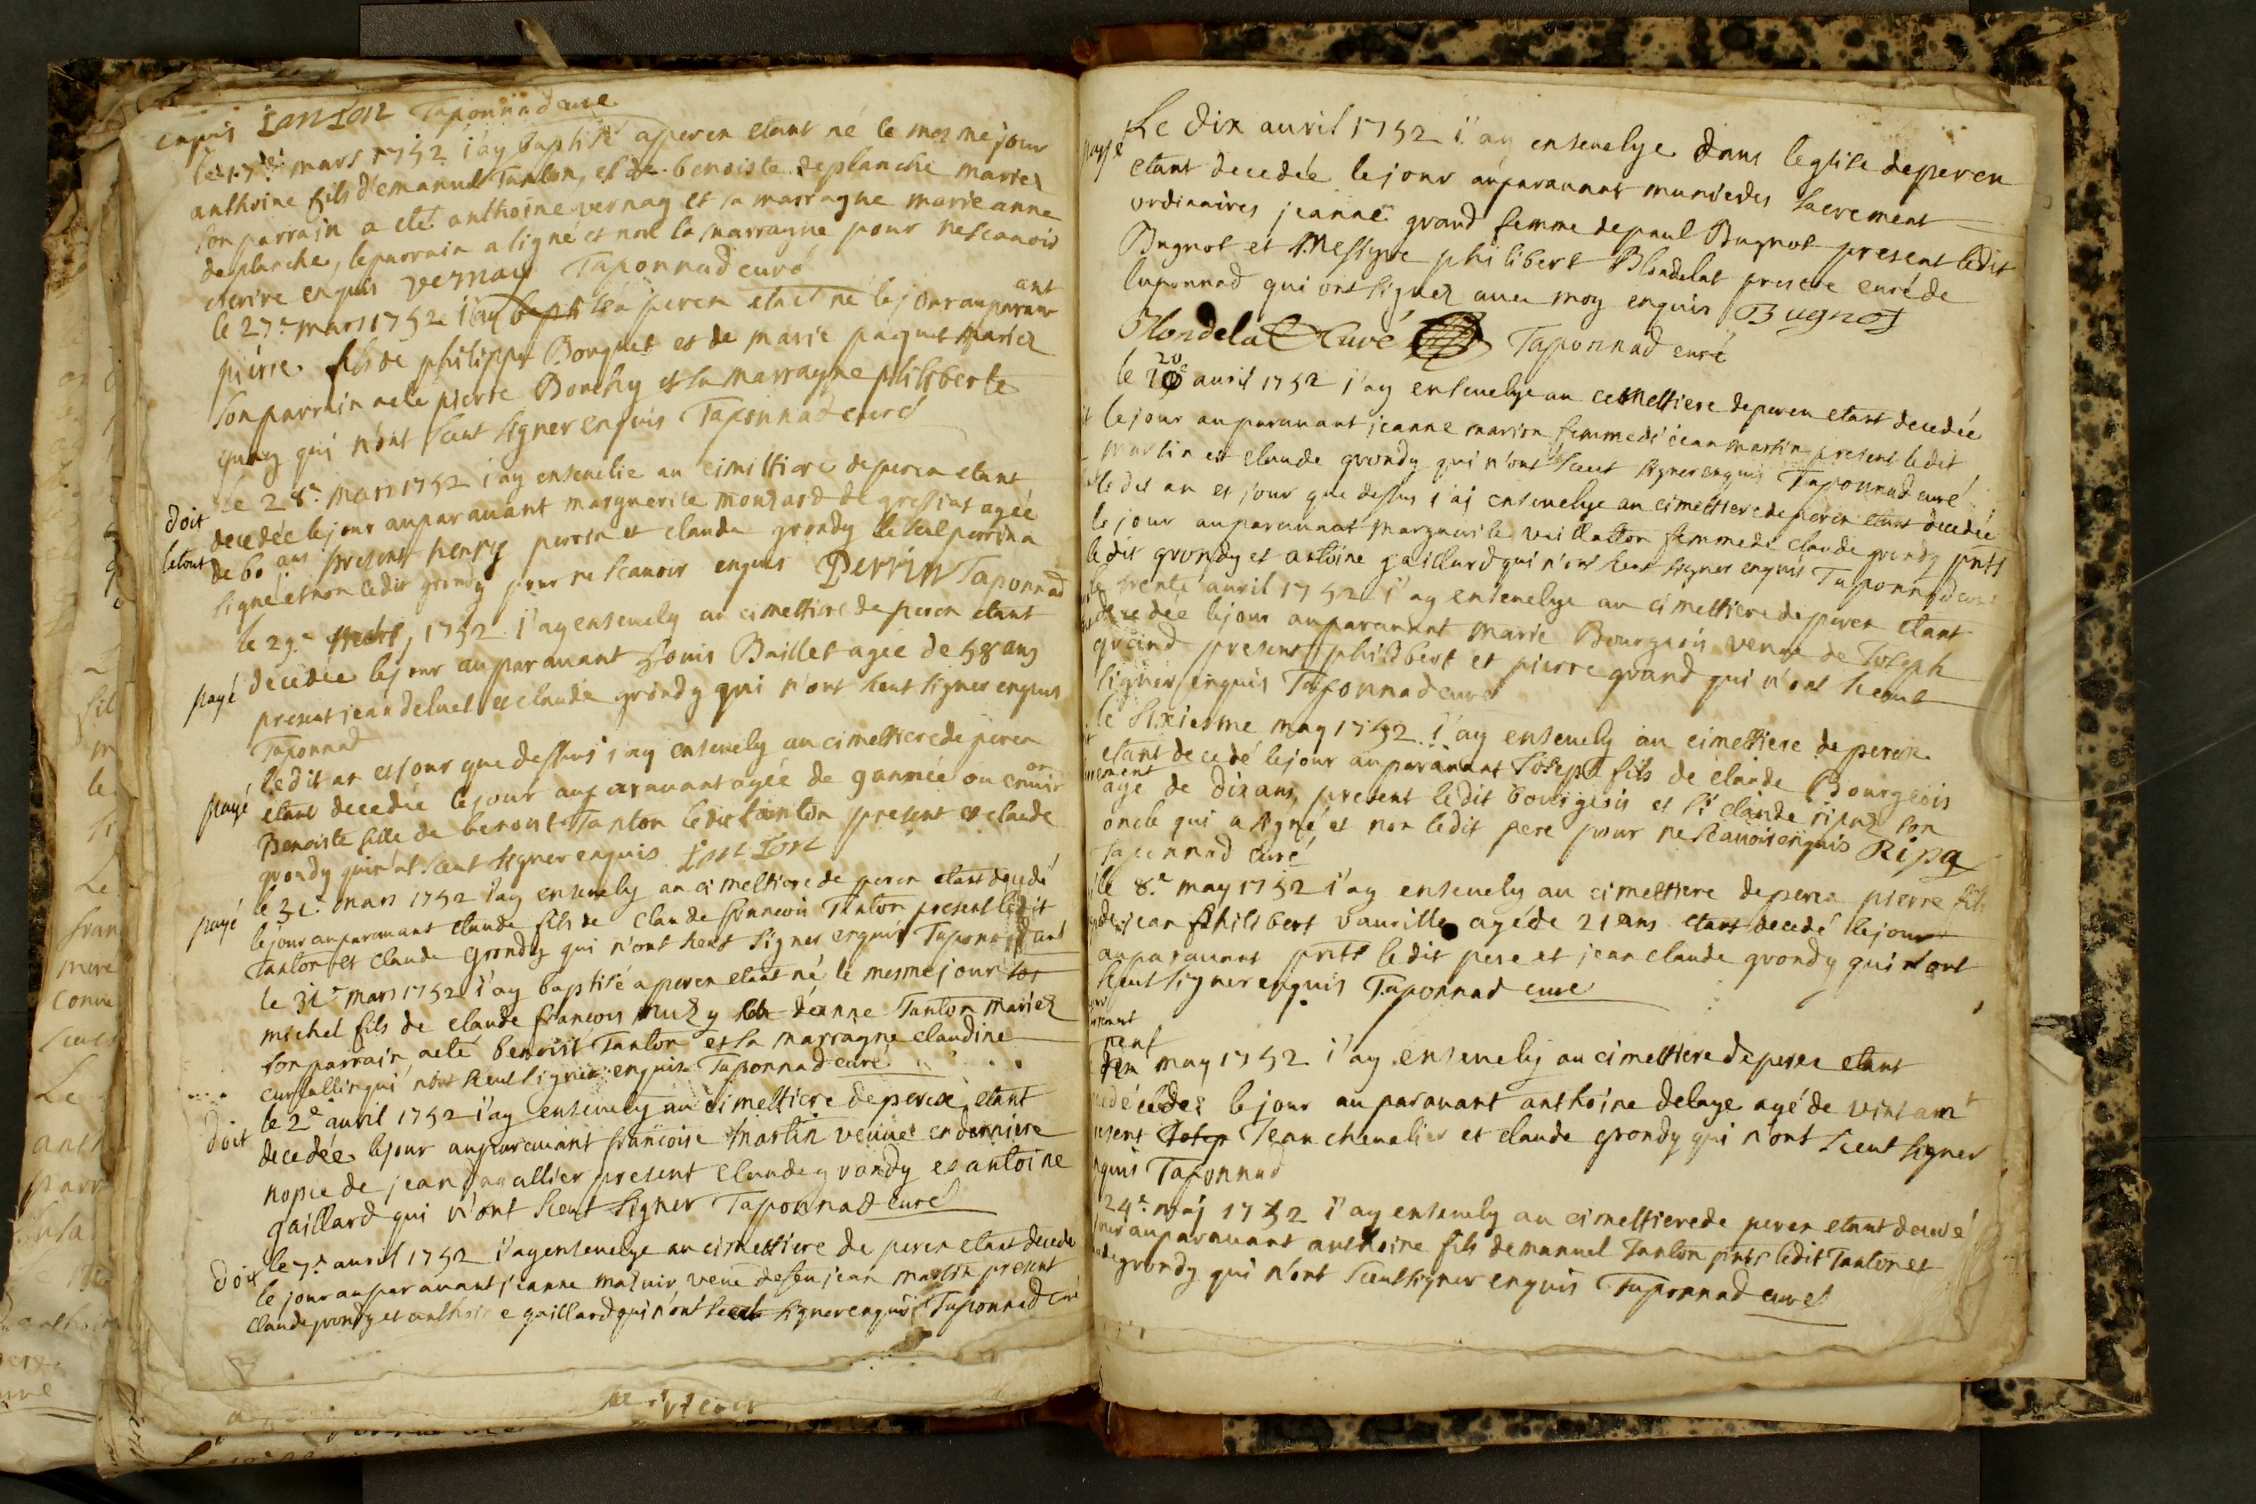 enquis TonTon Taponnad curé
le 17e mars 1752 i'ay baptisé a peren etant né le mesme jour
anthoine fils d'emanuel Tanton, et de benoiste deplanche mariez
son parrain a eté anthoine vernay et sa marragne marie anne
deplanche, le parrain a signé et non la marragne pour ne scauoir
ecrire enquis vernay Taponnad curé
le 27e mars 1752 i'ay baptisé a peren etant né le jour auparau
ant
pierre fils de philippe Bouquet et de marie paquet mariez
son parrain a eté pierre Bouchy et sa marragne philiberte
qui n'ont sceut signer enquis Taponnad curé
le 28e mars 1752 i'ay enseuelie au cimittiere de peren etant
doit
decedée le jour auparauant marguerite monsard de gressins agée
le tout
de 60 ans present henry perrin et claude grondy le seul perrin a
signé et non ledit grondy pour ne scauoir enquis Perrin Taponnad
le 29e mars, 1752 i'ay enseuely au cimettiere de peren etant
decedée le jour auparauant Louis Baillet agée de 58 ans
payé
present jean deluel et claude grondy qui n'ont sceut signer enquis
Taponnad
ledit an et jour que dessus i'ay enseuely au cimettiere de peren
payé
etant decedée le jour auparauant agée de 9 année ou enuir
on
Benoiste fille de benoist Tanton ledit tanton present et claude
grondy qui n'ont sceut signer enquis TonTon
le 31e mars 1752 i'ay enseuely au cimettiere de peren etant decedé
payé
le jour auparauant claude fils de claude francois Tanton present ledit
Tanton et claude Grondy qui n'ont sceut signer enquis Taponnad curé
le 31e mars 1752 i'ay baptisé a peren etant né le mesme jour
michel fils de claude francois et de deanne Tanton mariez
son parrain a eté benoist Tanton et sa marragne claudine
curtallin qui n'ont sceut signer enquis Taponnad curé
le 2e auril 1752 i'ay enseuely au cimettiere de peren etant
doit
decedée le jour auparauant francoise martin veuue en derniere
nopce de jean Jauallier present claude grondy et antoine
gaillard qui n'ont sceut signer Taponnad curé
le 7e auril 1752 i'ay enseuelye au cimettiere de peren etant decedé
doit
le jour auparauant jeanne mazuir veue de feu jean martin present
claude grondy et anthoine gaillard qui n'ont sceut signer enquis Taponnad curé
Le dix auril 1752 i'ay enseuelye dans leglise de peren
payé
etant decedée le jour auparauant munie des sacrement
ordinaires jeanne grand femme de paul Bugnot present ledit
Bugnot et Messire philibert Blondelat prestre curé de
luponnad qui ont signez auec moy enquis Bugnot
Blondelat Curé Taponnad curé
20
le auril 1752 i'ay enseuelye au cemettiere de peren etant decedée
le jour auparauant jeanne marion femme de jean martin present ledit
martin et claude grondy qui n'ont sceut signer enquis Taponnad curé
ledit an et jour que dessus i'ai enseuelye au cimettiere de peren etant decedée
le jour auparauant marguerite vaillatton femme de claude grondy pntt
ledit grondy et antoine gaillard qui n'ont sceut signer enquis Taponnad curé
trente auril 1752 i'ay enseuelye au cimettiere de peren etant
decedée le jour auparauant marie Bourgeois veuue de Joseph
grand present philibert et pierre grand qui n'ont sceut
signer enquis Taponnad curé
le sixiesme may 1752 i'ay enseuely au cimettiere de peren
etant decedé le jour auparauant Joseph fils de claude Bourgeois
agé de dix ans, present ledit bourgeois et sr claude ripaz son
oncle qui a signé, et non ledit pere pour ne scauoir enquis Ripa
Taponnad curé
le 8e may 1752 i'ay enseuely au cimettiere de peren pierre fils
de jean philibert vaurille agé de 21 ans etant decedé le jour
auparauant pntt le dit pere et jean claude grondy qui n'ont
sceut signer enquis Taponnad curé
neuf
may 1752 i'ay enseuely au cimettiere de peren etant
le jour auparauant anthoine delaye agé de vint ant
Jean cheualier et claude grondy qui n'ont sceut signer
enquis Taponnad
24e maj 1752 i'ay enseuely au cimettiere de peren etant decedé
auparauant anthoine fils demanuel Tanton pntt ledit Tanton et
grondy qui n'ont sceut signer enquis Taponnad curé